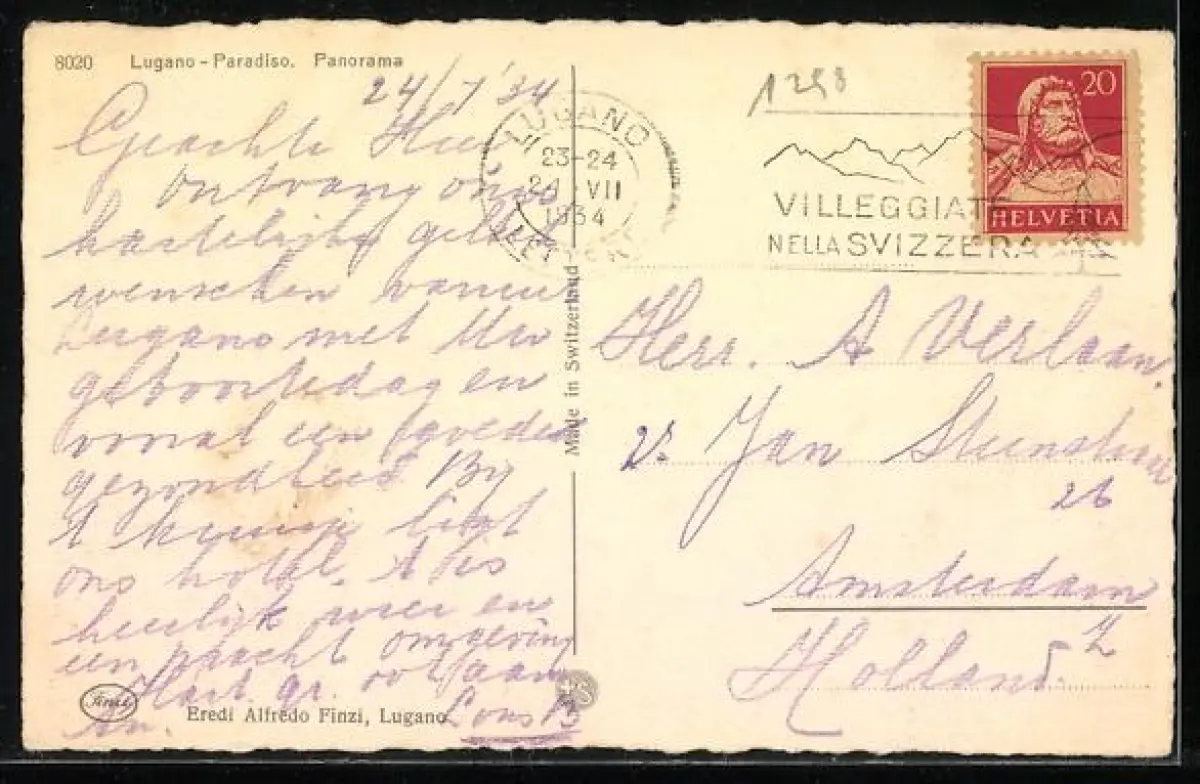 8020 Lugano - Paradiso. Panorama
24/7 '34
Geachte Heer
ontvang onze
hartelijke geluk
wenschen vanuit
Lugano met Uw
geboortedag en
vooral een goede
gezondheid. Bij
't kruisje ligt
ons hotel. 't Is
heerlijk weer en
een pracht omgeving
Hart. gr. ook aan
Eredi Alfredo Finzi, Lugano
Finzi
Made in Switzerland
LUGANO
23-24
24 VII
1934
LETTERE
1258
VILLEGGIATE
NELLA SVIZZERA
20
HELVETIA
Herr. A Verlaan.
v. Jan Steenstraat
26
Amsterdam
Z
Holland.